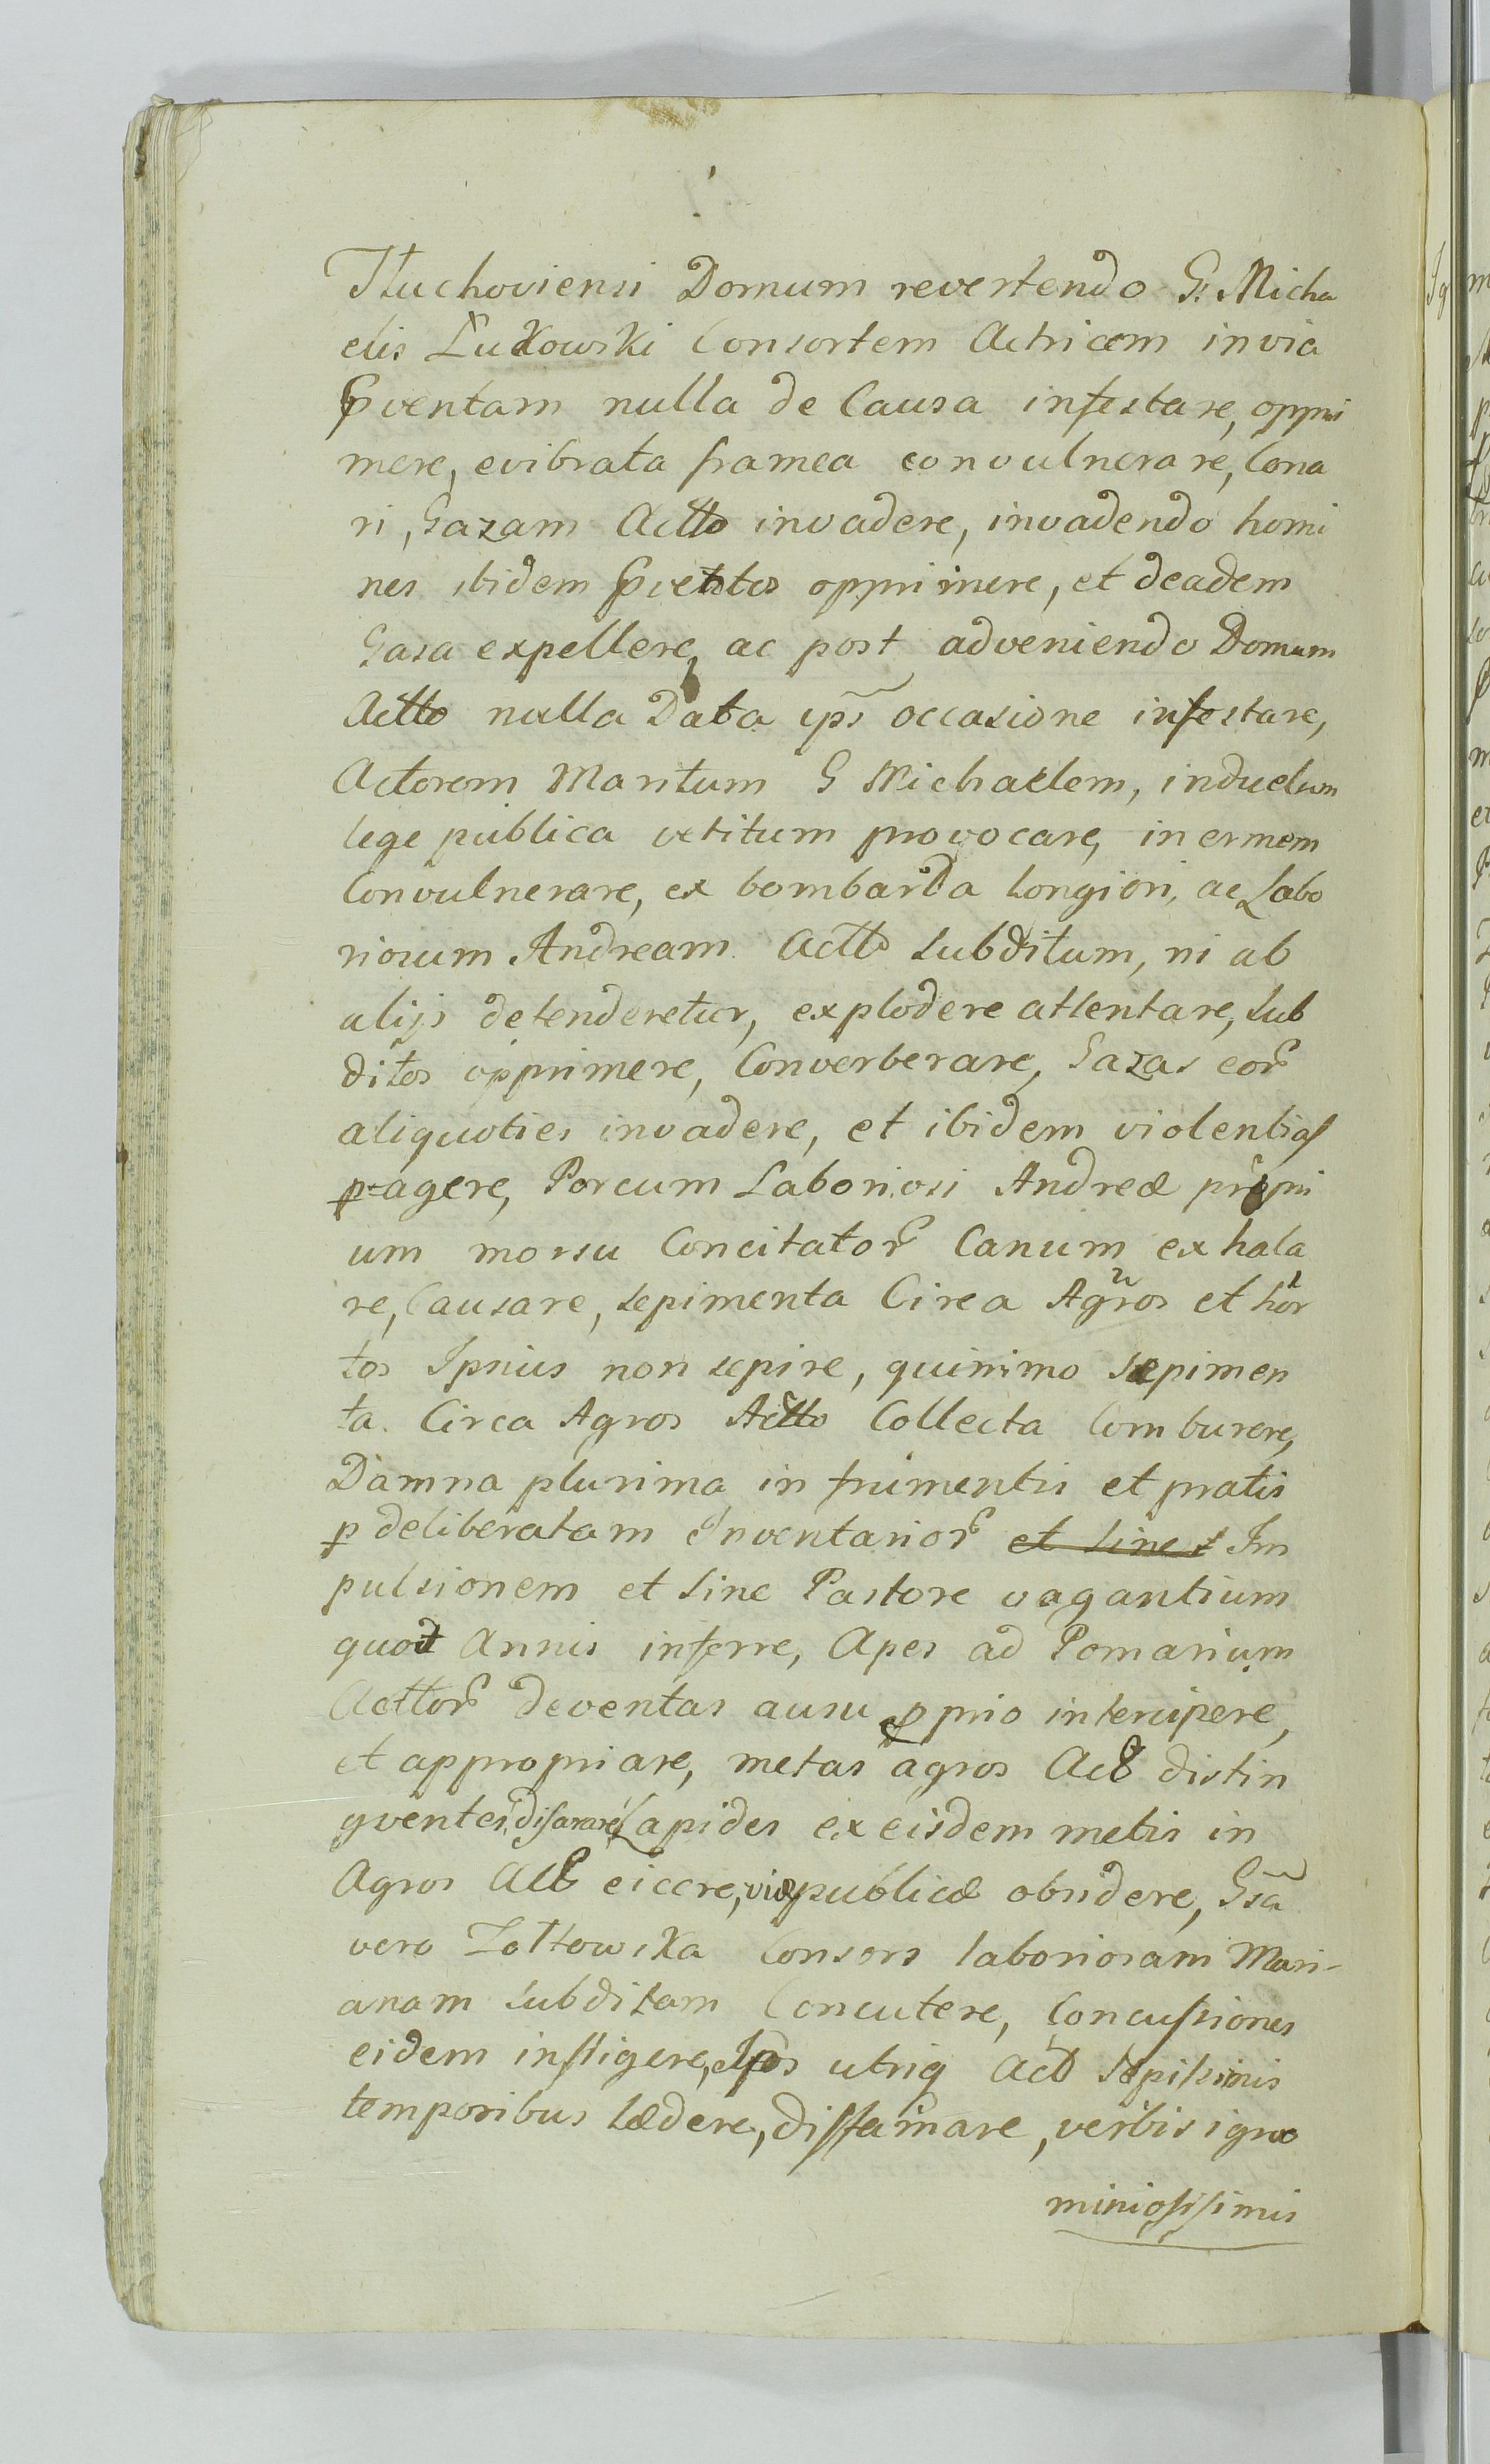 Tłuchoviensi Domum revertendo G. Micha
elis Łukowski Consortem Actricem in via
pventam nulla de Causa infestare, oppri
mere, evibrata framea convulnerare, Cona
ri, Gazam Actto invadere, invadendo homi
nes ibidem pventos opprimere, et deadem
Gasa expellere, ac post adveniendo Domum
Actto nulla Data ips occasione infestare,
Actorem Maritum G Michaelem, induelum
lege publica vetitum provocare, inermem
Convulnerare, ex bombarda longiori, ac Labo
riosum Andream Actto subditum, ni ab
alijs detenderetur, explodere attentare, sub
ditos opprimere, Converberare, Gazas eor
aliquoties invadere, et ibidem violentias
pagere, Porcum Laboriosi Andreæ propri
um morsu Concitator Canum exhala
re, Causare, sepimenta Circa Agros et hor
tos Ipsius non sepire, quinimo sepimen
ta Circa Agros Actto Collecta Comburere,
Damna plurima in frumentis et pratis
p deliberatam Inventarior et sine Im
pulsionem et sine Pastore vagantium
quot Annis inferre, Apes ad Pomarium
Acttor deventas ausu pprio intercipere,
et appropriare, metas agros Act distin
gventes, disarare, Lapides ex eisdem metis in
Agros Act eicere, vias publicæ obsidere, Gsa
vero Zołtowska Consors laboriosam Mari-
anam subditam Concutere, Concussiones
eidem infligere, Ipos utriq Act sæpissimis
temporibus lædere, diffamare, verbis igno
miniosissimis